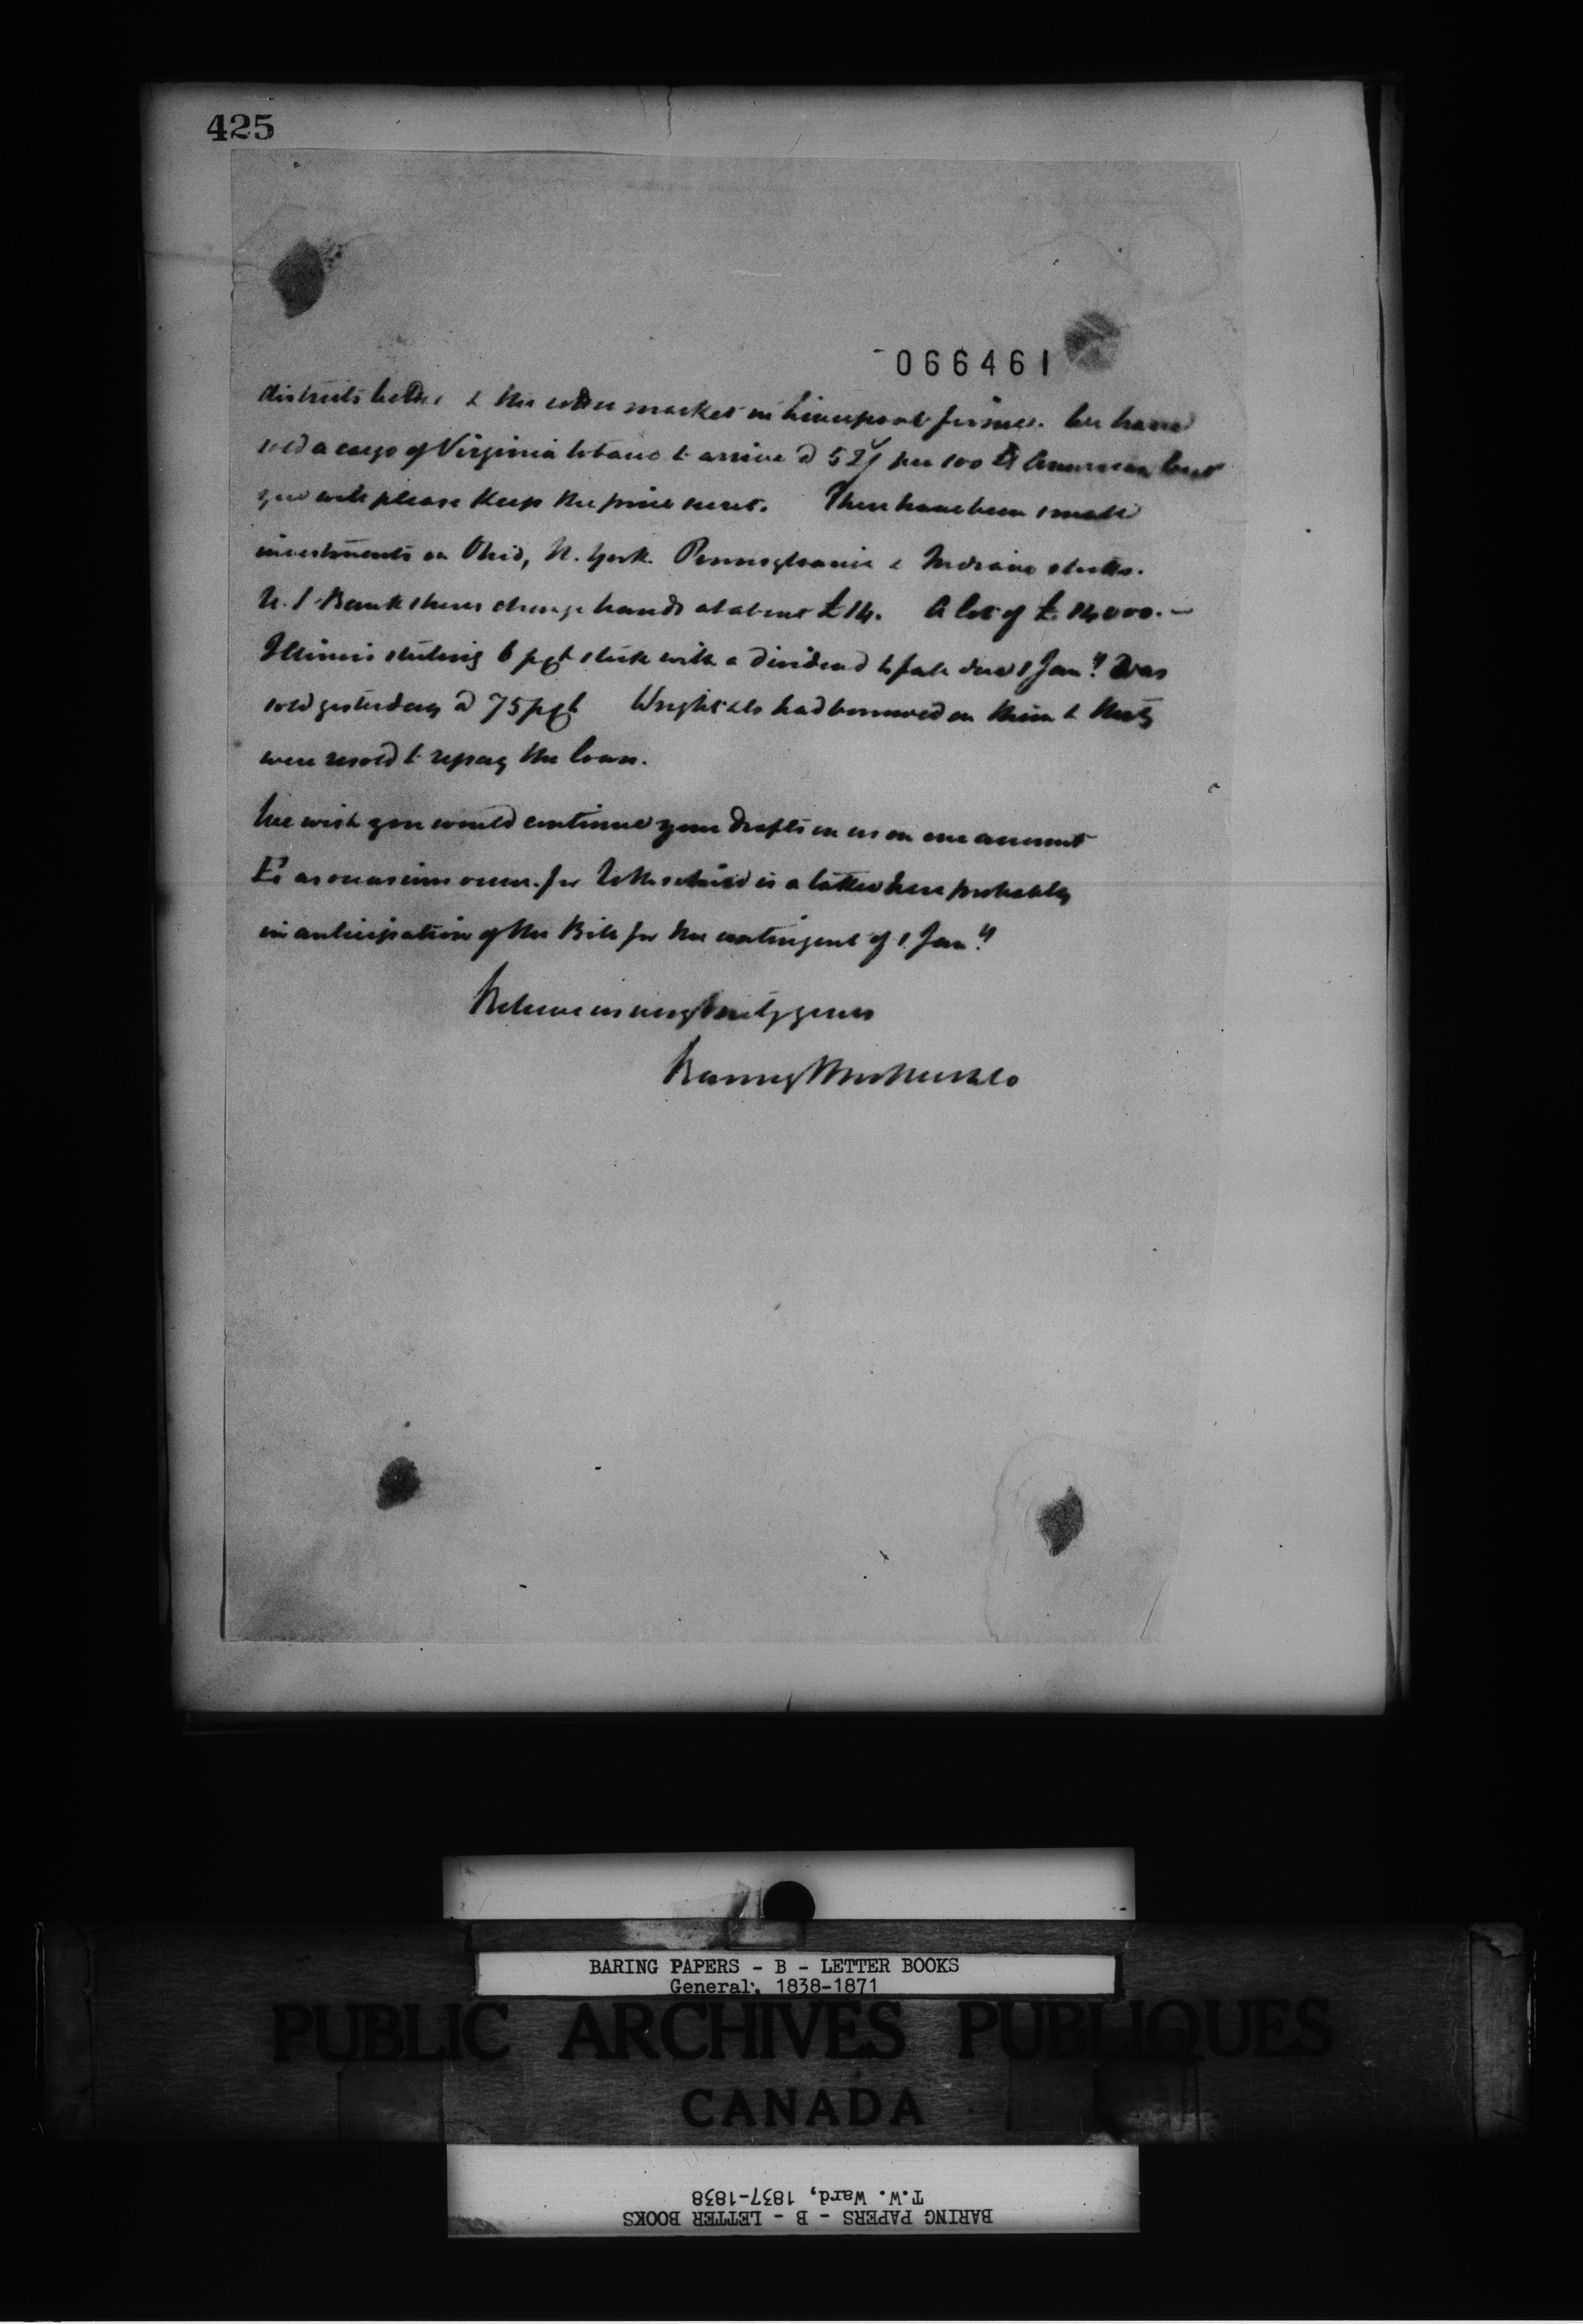 425
066461
districts better & the cotton market in Liverpool firmer. We have
sold a cargo of Virginia tobacco to arrive @ 52/ per 100 lb American but
you will please keep the price secret. There have been small
investments in Ohio, N. York. Pennsylvania & Indiana stocks.
U. S Bank shares change hands at about £14. A lot of £14,000.—
Illinois sterling 6 pct stock with a dividend to fall due 1 Jany was
sold yesterday @ 75 pct Wright & Co had borrowed on them & they
were resold to repay the loan.
We wish you would continue your drafts on us on our account
as occasions occur. for Rothschild is a here probably
in anticipation of the Bill for the contingent of 1. Jany
Believe us very truly yours
Baring Brothers & Co
BARING PAPERS - B - LETTER BOOKS
General, 1838-1871
PUBLIC ARCHIVES PUBLIQUES
CANADA
BARING PAPERS - B - LETTER BOOKS
T.W. Ward, 1837-1838